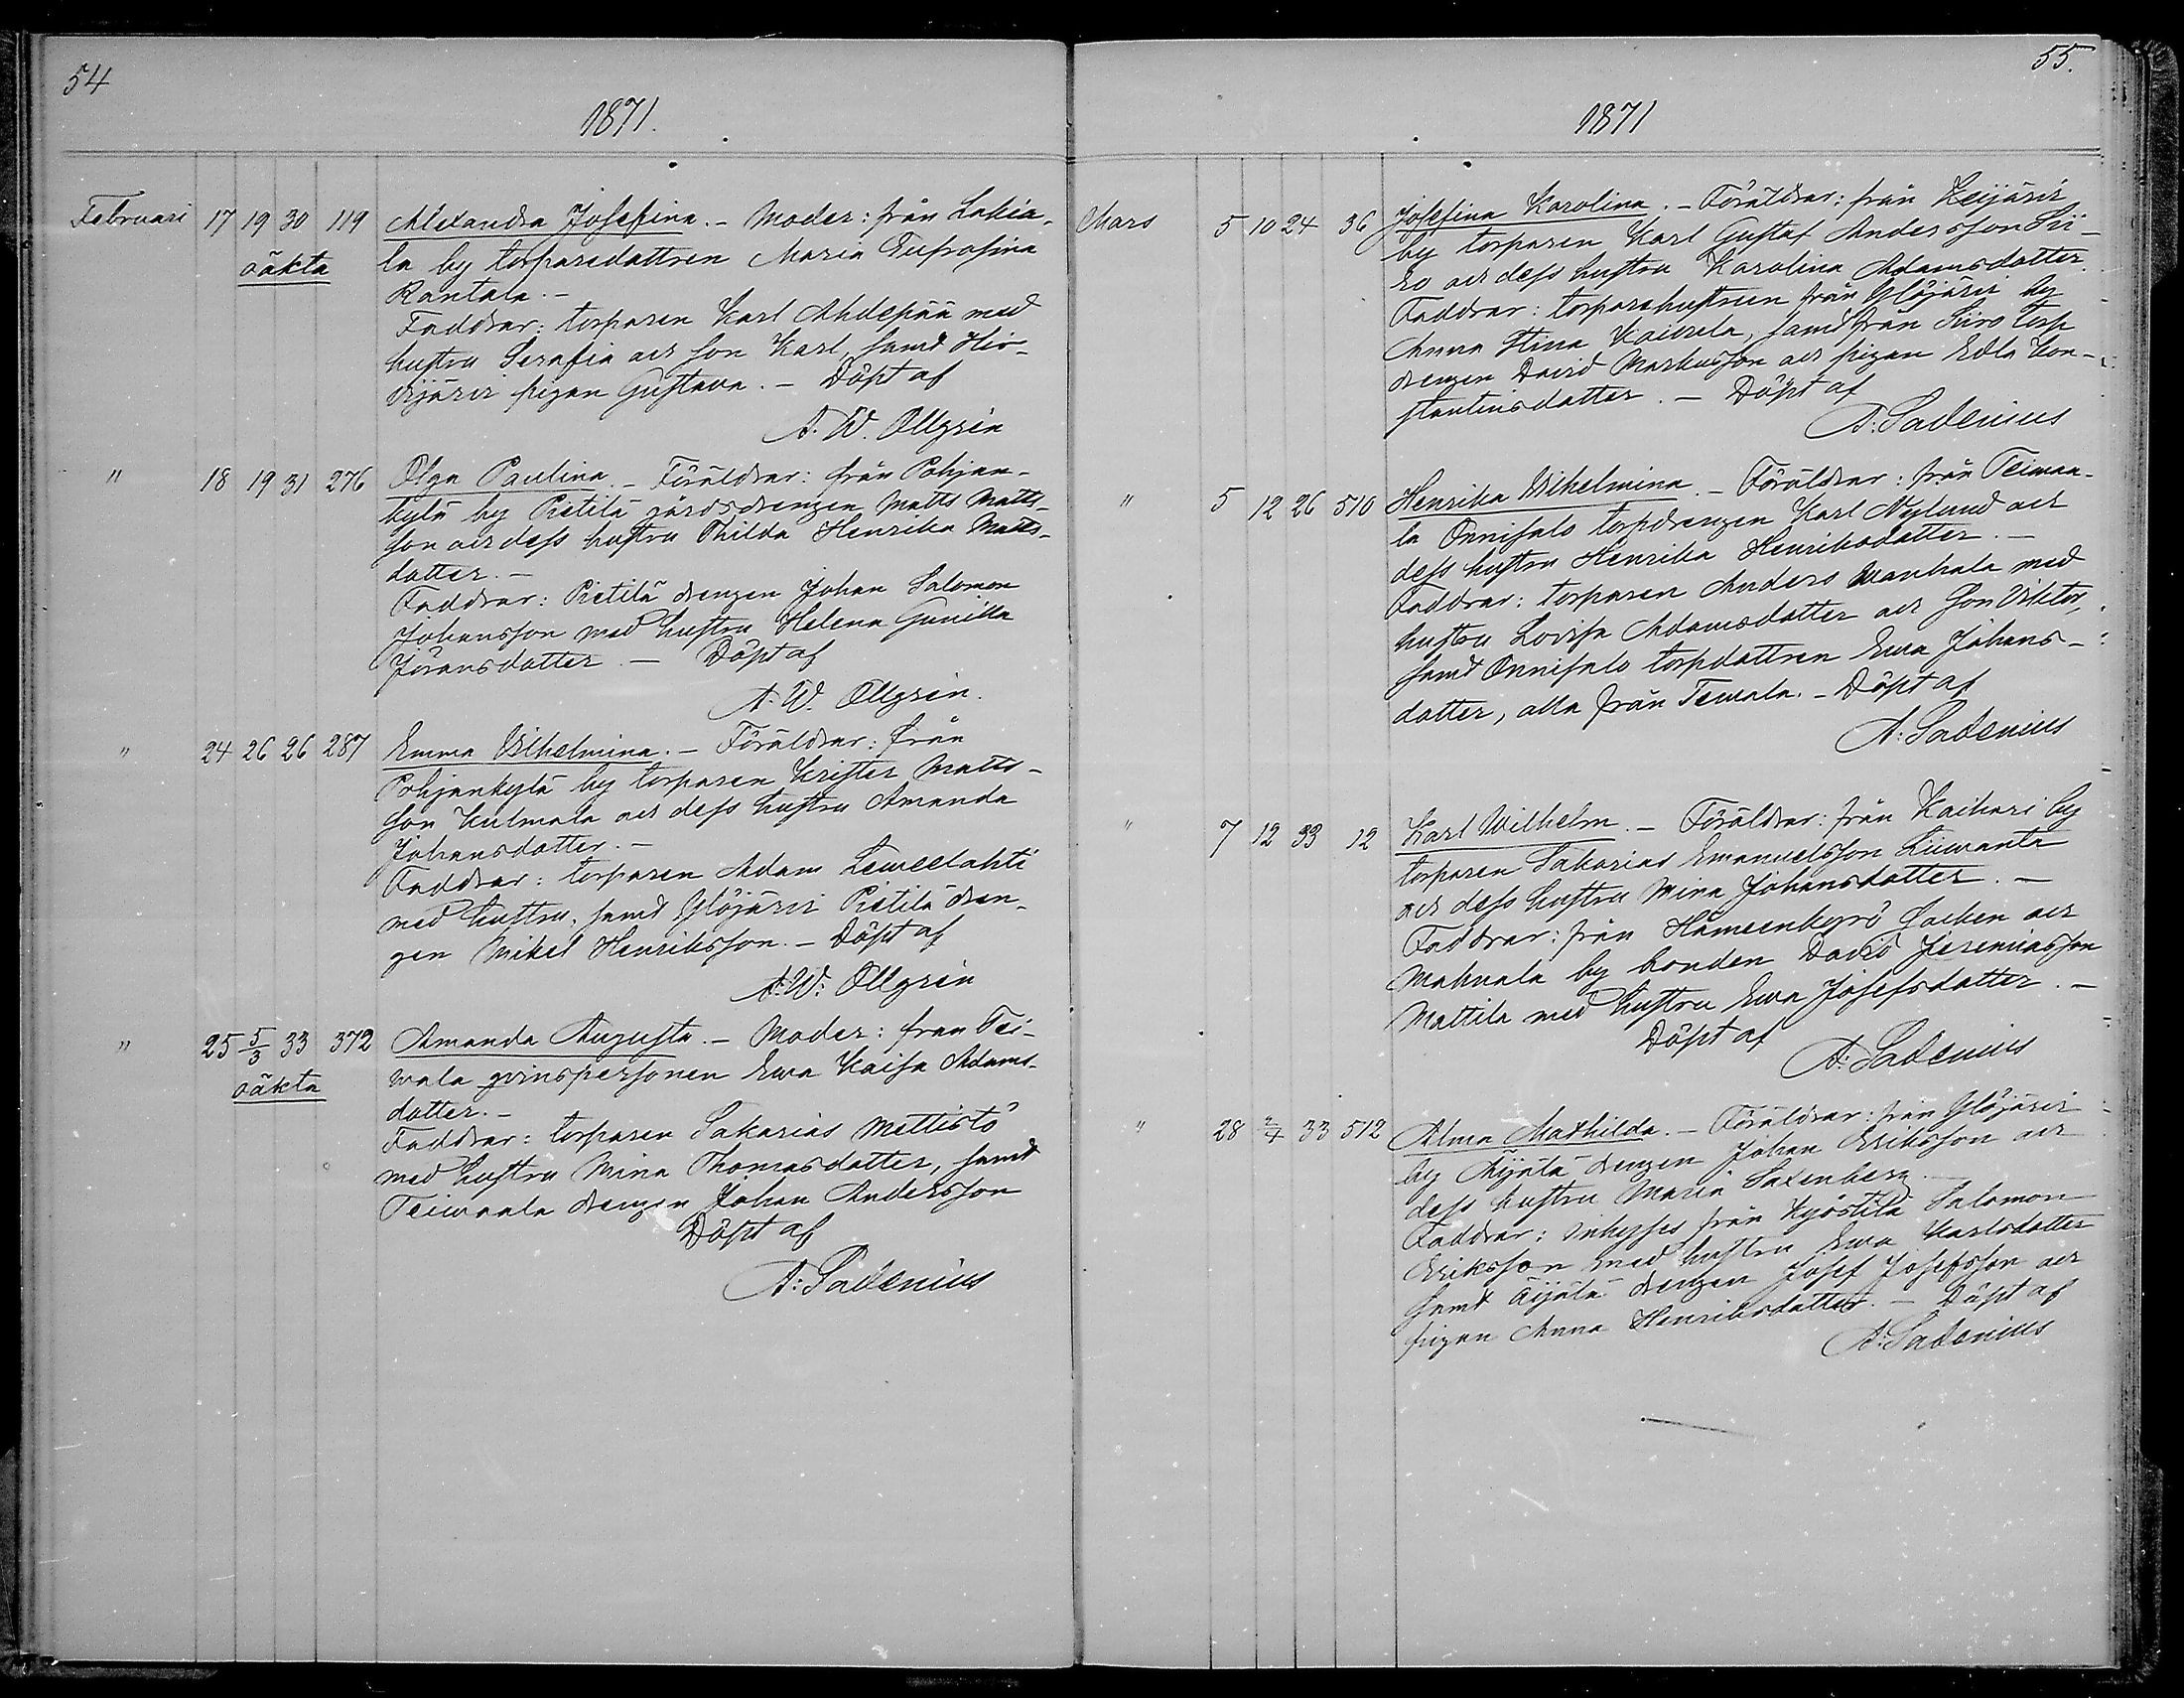 54
1871.
Februari 17 19 30 119 Alexandra Josefina. - Moder: från Lakia-
oäkta
la by torparedottren Maria Eufrosina
Rantala. -
Faddrar: torparen Karl Ahdepää med
hustru Serafia och son Karl, samt Hir-
vijärvi pigan Gustava. - Döpt af
A. W. Ollgrén
" 18 19 31 276 Olga Paulina. - Föräldrar: från Pohjan-
kylä by Pietilä gårdsdrengen Matts Matts-
son och dess hustru Thilda Henrika Matts-
dotter. -
Faddrar: Pietilä drengen Johan Salomon
Johansson med hustru Helena Gunilla
Jöransdotter. - Döpt af
A. W. Ollgrén.
" 24 26 26 287 Emma Wilhelmina. - Föräldrar: från
Pohjankylä by torparen Krister Matts-
son Kulmala och dess hustru Amanda
Johansdotter. -
Faddrar: torparen Adam Leweelahti
med hustru, samt Ylöjärvi Pietilä dren-
gen Mikel Henriksson. - Döpt af
A. W. Ollgrén
" 25 5/3 33 372 Amanda Augusta. - Moder: från Tei-
oäkta
wala qvinspersonen Ewa Kaisa Adams-
dotter. -
Faddrar: torparen Sakarias Mettistö
med hustru Mina Thomasdotter, samt
Teiwaala drengen Johan Andersson
Döpt af
A: Sadenius
55.
1871
Mars 5 10 24 36 Josefina Karolina. - Föräldrar: från Keijärvi
by torparen Karl Gustaf Andersson Sii-
ro och dess hustru Karolina Adamsdotter.
Faddrar: torparehustrun från Ylöjärvi by
Anna Stina Kaivola, samt från Siiro torp
drengen David Markusson och pigan Edla Kon-
stantinsdotter. - Döpt af
A: Sadenius
" 5 12 26 510 Henrika Wilhelmina. - Föräldrar: från Teiwaa-
la Onnisalo torpdrengen Karl Nylund och
dess hustru Henrika Henriksdotter. -
Faddrar: torparen Anders Wanhala med
hustru Lovisa Adamsdotter och son Viktor,
samt Onnisalo torpdottren Ewa Johans-
dotter, alla från Teivala. - Döpt af
A: Sadenius
" 7 12 33 12 Karl Wilhelm. - Föräldrar: från Kaihari by
torparen Sakarias Emanuelsson Liuwanta
och dess hustru Mina Johansdotter. -
Faddrar: från Hämeenkyrö socken och
Mahnala by bonden David Jeremiasson
Mattila med hustru Ewa Josefsdotter. -
Döpt af
A: Sadenius
" 28 2/4 33 512 Alma Mathilda. - Föräldrar: från Ylöjärvi
by Äijälä drengen Johan Eriksson och
dess hustru Maria Saxenberg. -
Faddrar: inhyses från Kyöstilä Salomon
Eriksson med hustru Ewa Karlsdotter
samt Äijälä drengen Josef Josefsson och
pigan Anna Henriksdotter. - Döpt af
A: Sadenius